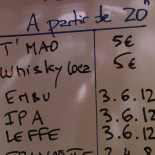 A partir de 20h
T'MAO 5€
Whisky Coca 5€
EMBU 3.6.12
IPA 3.6.12
LEFFE 3.6.12